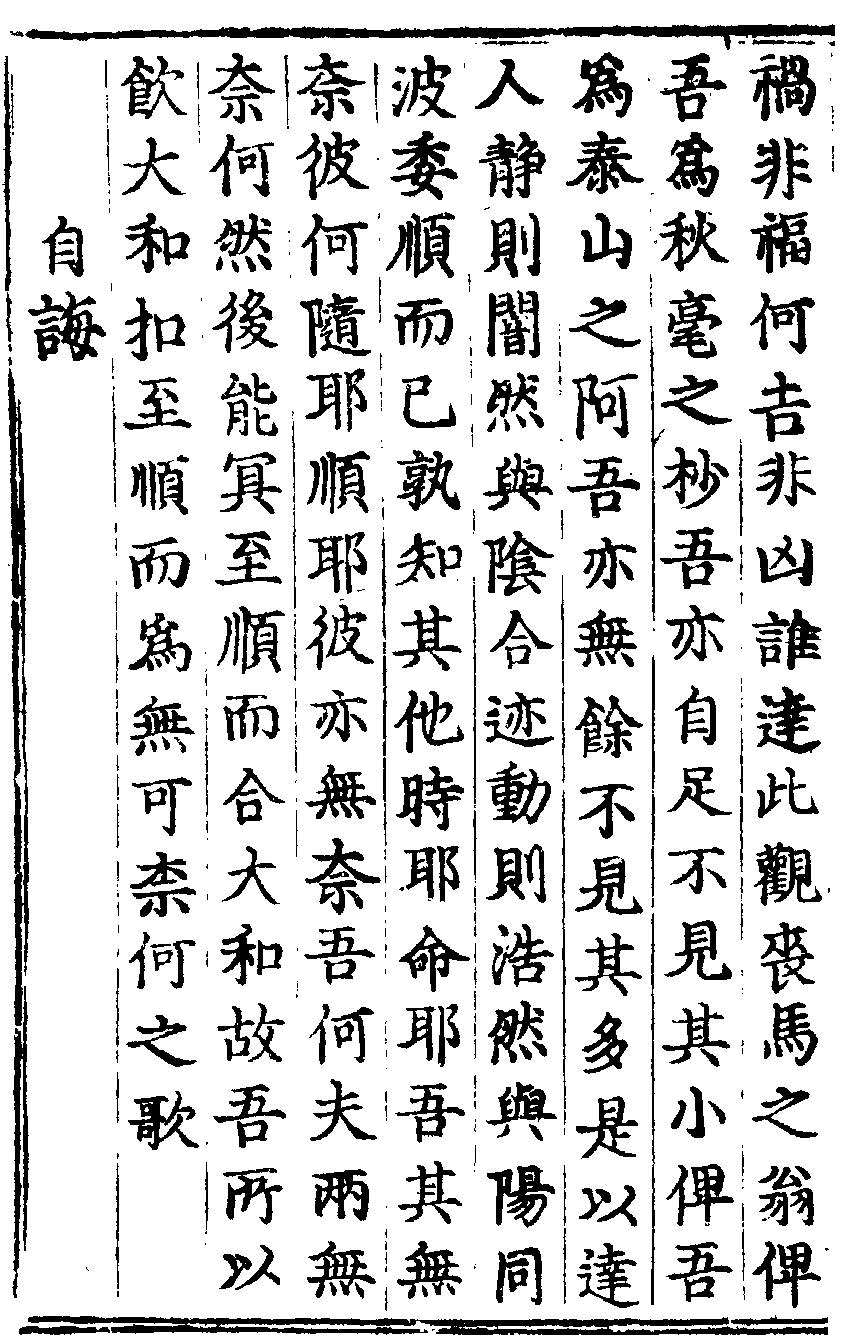 禍非福何吉非凶誰達此觀喪馬之翁俾
吾爲秋毫之杪吾亦自足不見其小俾吾
爲泰山之阿吾亦無餘不見其多是以達
人静則闇然與陰合迹動則浩然與陽同
波委順而已孰知其他時耶命耶吾其無
奈彼何隨耶順耶彼亦無奈吾何夫兩無
奈何然後能冥至順而合大和故吾所以
飲大和扣至順而爲無可柰何之歌
自誨